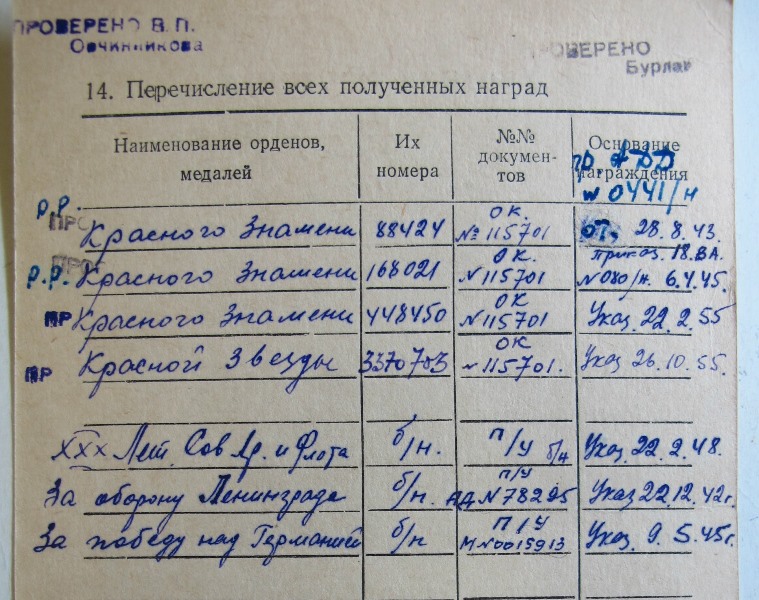 ПРОВЕРЕНО В. П.
Овчинникова
ПРОВЕРЕНО
Бурлак
14. Перечисление всех полученных наград
Наименование орденов, медалей
Их номера
№№ документов
Основание награждения
пр. АДД
№ 0441/н
р.р. Красного Знамени 88424 ОК. № 115701 от 28.8.43.
р.р. Красного Знамени 168021 ОК. N 115701 приказ. 18.ВА. N 080/н. 6.4.45.
ПР Красного Знамени 448450 ОК N 115701 Указ 22.2.55
ПР Красной Звезды 3370703 ОК N 115701. Указ 26.10.55.
XXX Лет. Сов Ар. и Флота б/н. П/У б/н Указ. 22.2.48.
За оборону Ленинграда б/н. П/У АД N 78295 Указ 22.12.42г.
За победу над Германией б/н П/У М N 0015913 Указ. 9.5.45г.